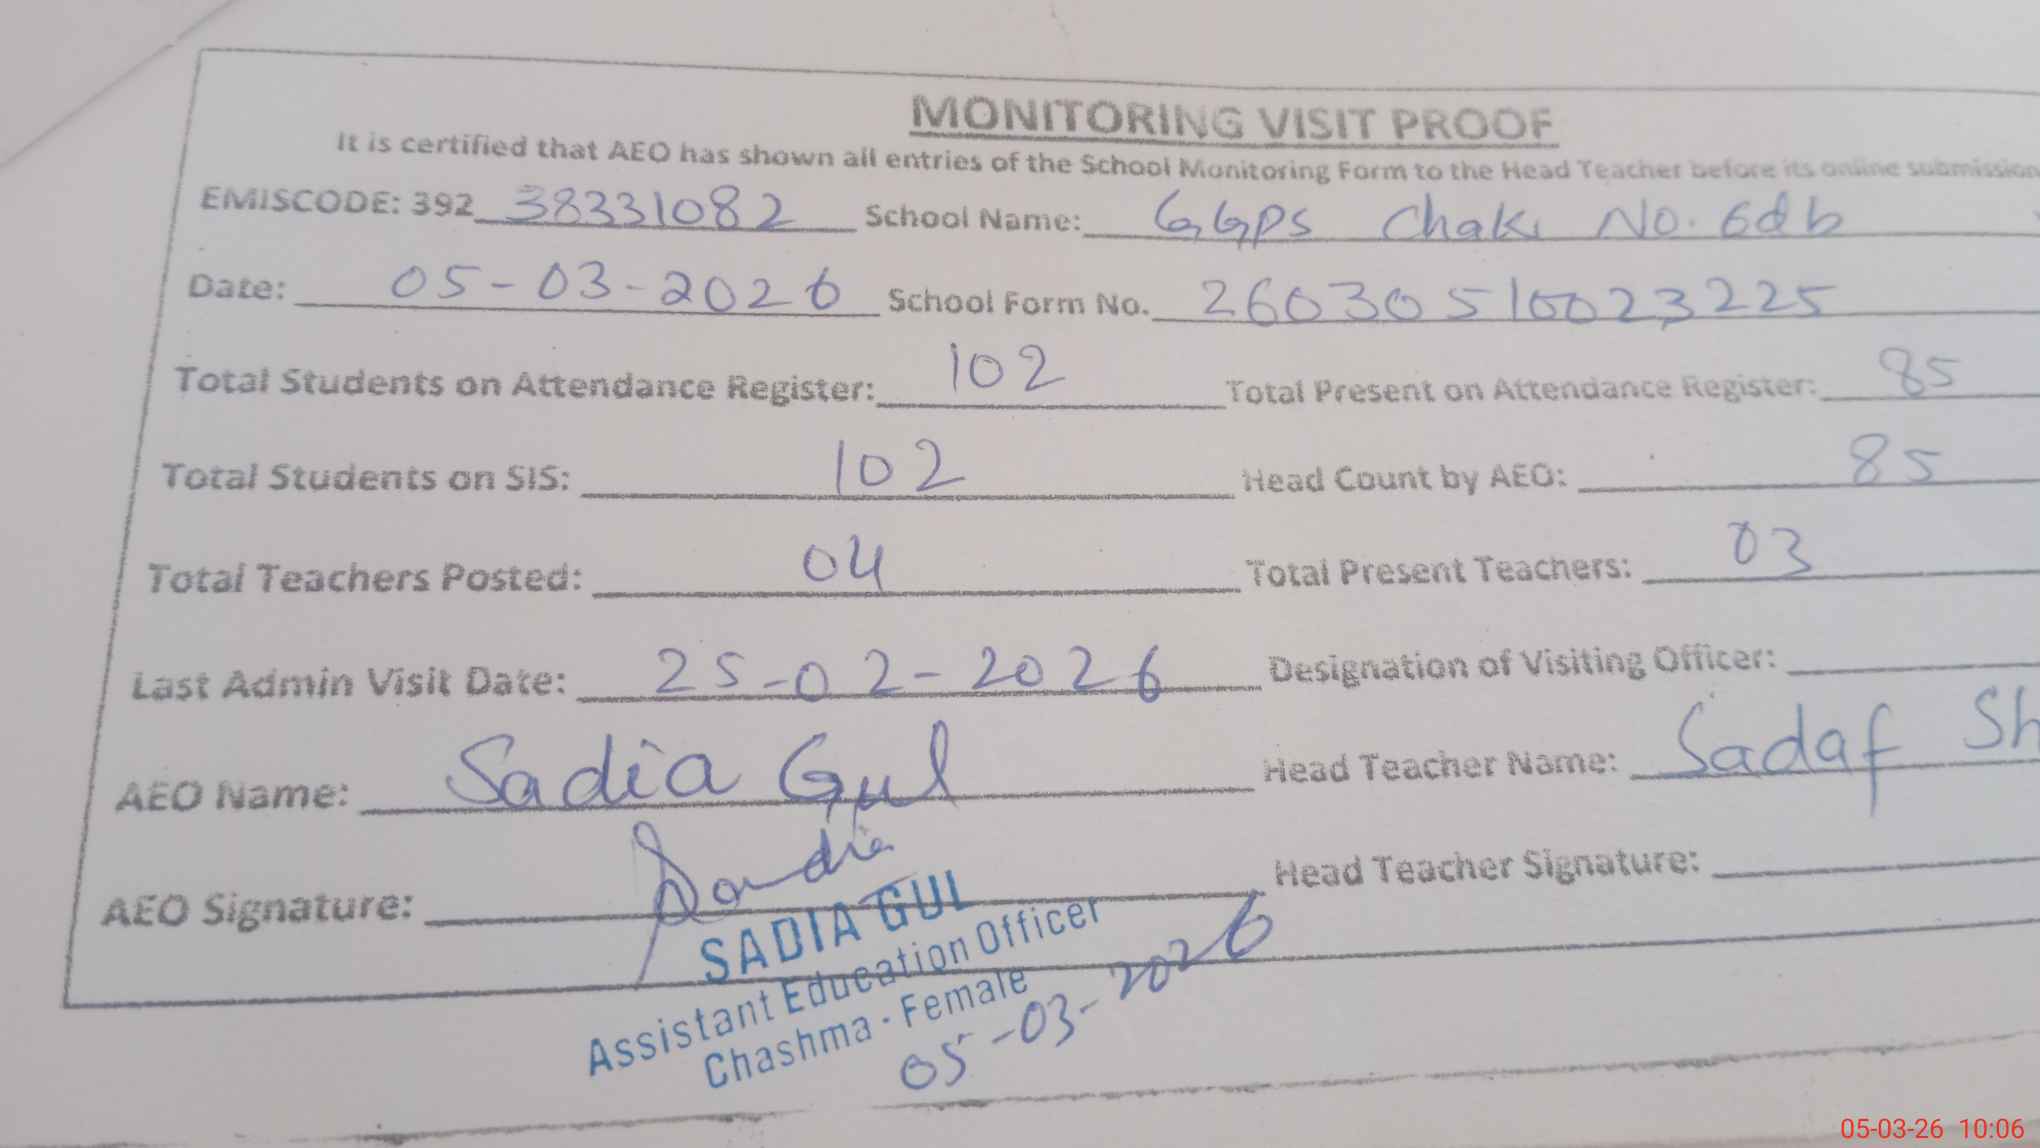 MONITORING VISIT PROOF
It is certified that AEO has shown all entries of the School Monitoring Form to the Head Teacher before its online submission
EMISCODE: 392 38331082 School Name: GGPS Chak No. 6db
Date: 05-03-2026 School Form No. 26030510023225
Total Students on Attendance Register: 102 Total Present on Attendance Register: 85
Total Students on SIS: 102 Head Count by AEO: 85
Total Teachers Posted: 04 Total Present Teachers: 03
Last Admin Visit Date: 25-02-2026 Designation of Visiting Officer:
AEO Name: Sadia Gul Head Teacher Name: Sadaf Sh
AEO Signature: Sadia Head Teacher Signature:
SADIA GUL
Assistant Education Officer
Chashma - Female
05-03-2026
05-03-26 10:06